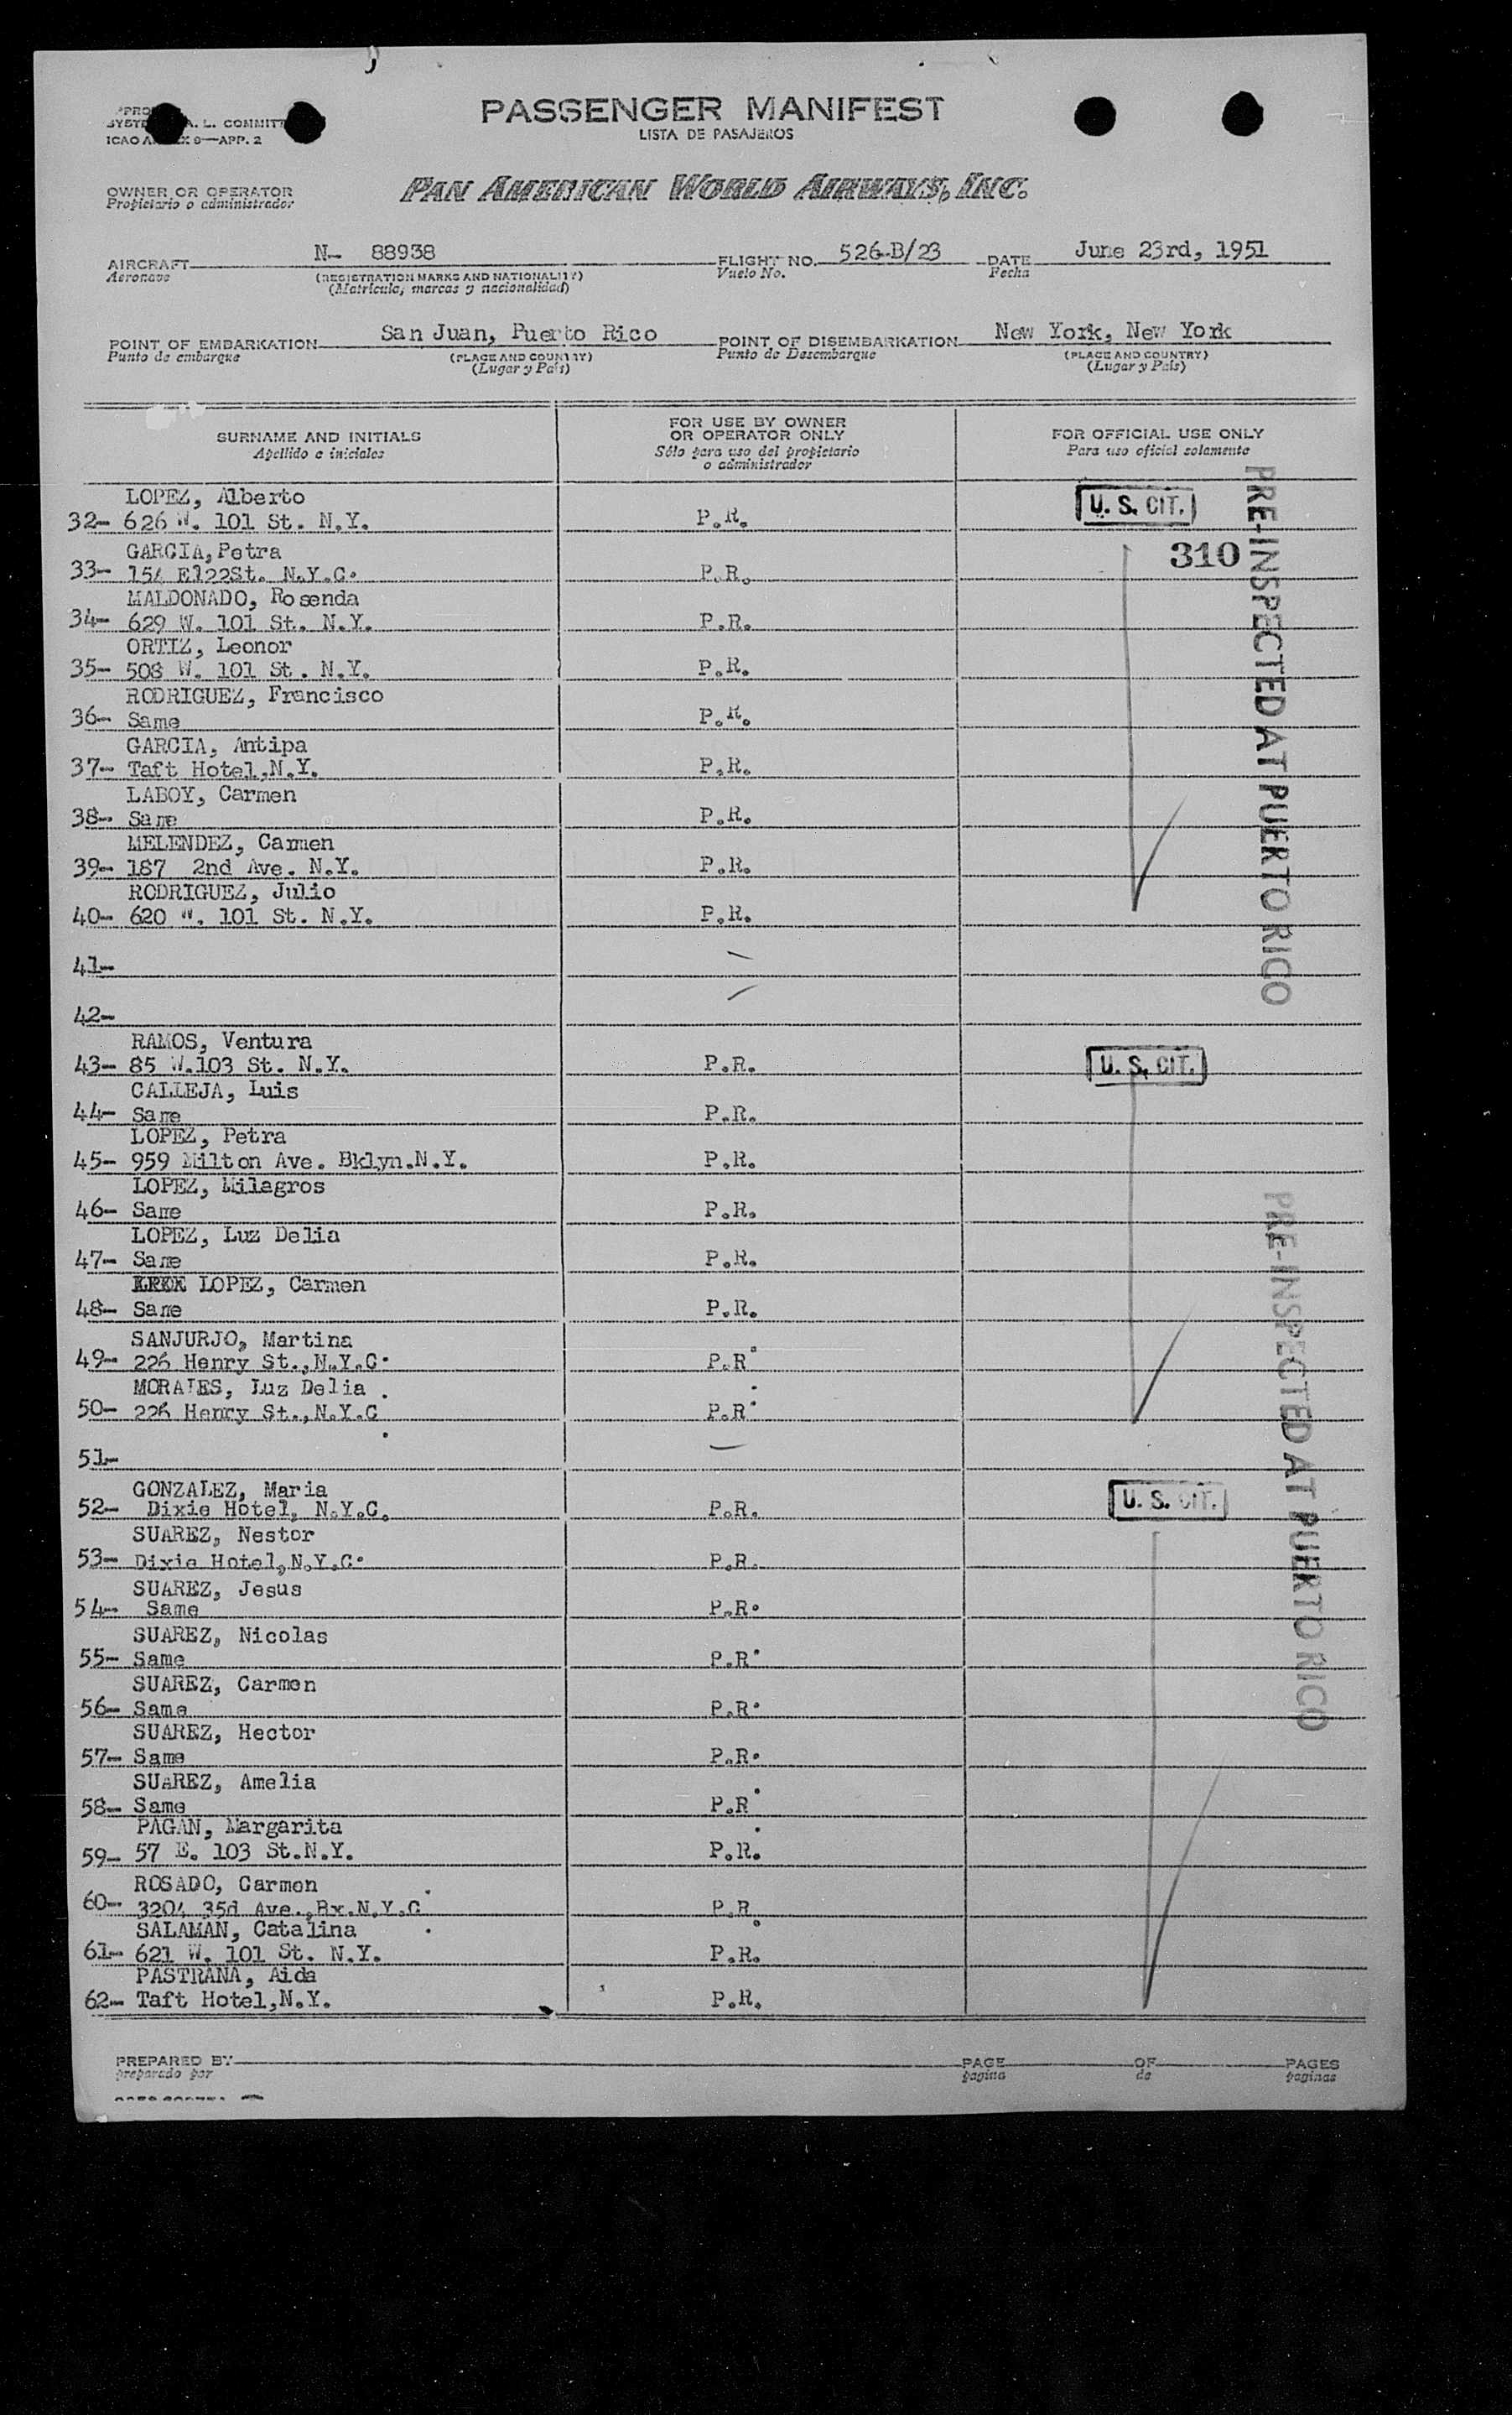 PASSENGER MANIFEST
LISTA DE PASAJEROS
A. L. COMMITT
ICAO 9—APP. 2
OWNER OR OPERATOR
Propietario o administrador
PAN AMERICAN WORLD AIRWAYS, INC.
AIRCRAFT N- 88938 FLIGHT NO. 526-B/23 DATE June 23rd, 1951
Aeronave (REGISTRATION MARKS AND NATIONALITY) Vuelo No. Fecha
(Matricula, marcas y nacionalidad)
POINT OF EMBARKATION San Juan, Puerto Rico POINT OF DISEMBARKATION New York, New York
Punto de embarque (PLACE AND COUNTRY) Punto de Desembarque (PLACE AND COUNTRY)
(Lugar y País) (Lugar y País)
SURNAME AND INITIALS
Apellido e iniciales
FOR USE BY OWNER
OR OPERATOR ONLY
Sólo para uso del propietario
o administrador
FOR OFFICIAL USE ONLY
Para uso oficial solamente
LOPEZ, Alberto
32- 626 W. 101 St. N.Y. P.R. U. S. CIT.
GARCIA, Petra 310
33- 154 E122St. N.Y.C. P.R.
MALDONADO, Rosenda
34- 629 W. 101 St. N.Y. P.R.
ORTIZ, Leonor
35- 508 W. 101 St. N.Y. P.R.
RODRIGUEZ, Francisco
36- Same P.R.
GARCIA, Antipa
37- Taft Hotel,N.Y. P.R.
LABOY, Carmen
38- Same P.R.
MELENDEZ, Carmen
39- 187 2nd Ave. N.Y. P.R.
RODRIGUEZ, Julio
40- 620 W. 101 St. N.Y. P.R.
PRE-INSPECTED AT PUERTO RICO
41-
42-
RAMOS, Ventura
43- 85 W.103 St. N.Y. P.R. U. S. CIT.
CALLEJA, Luis
44- Same P.R.
LOPEZ, Petra
45- 959 Milton Ave. Bklyn.N.Y. P.R.
LOPEZ, Milagros
46- Same P.R.
LOPEZ, Luz Delia
47- Same P.R.
LOPEZ, Carmen
48- Same P.R.
SANJURJO, Martina
49- 226 Henry St.,N.Y.C. P.R.
MORALES, Luz Delia
50- 226 Henry St.,N.Y.C. P.R.
51-
GONZALEZ, Maria
52- Dixie Hotel, N.Y.C. P.R. U. S. CIT.
SUAREZ, Nestor
53- Dixie Hotel,N.Y.C. P.R.
SUAREZ, Jesus
54- Same P.R.
SUAREZ, Nicolas
55- Same P.R.
SUAREZ, Carmen
56- Same P.R.
PRE-INSPECTED AT PUERTO RICO
SUAREZ, Hector
57- Same P.R.
SUAREZ, Amelia
58- Same P.R.
PAGAN, Margarita
59- 57 E. 103 St.N.Y. P.R.
ROSADO, Carmen
60- 3204 35d Ave.,Bx.N.Y.C. P.R.
SALAMAN, Catalina
61- 621 W. 101 St. N.Y. P.R.
PASTRANA, Aida
62- Taft Hotel,N.Y. P.R.
PREPARED BY PAGE OF PAGES
preparado por pagina de paginas